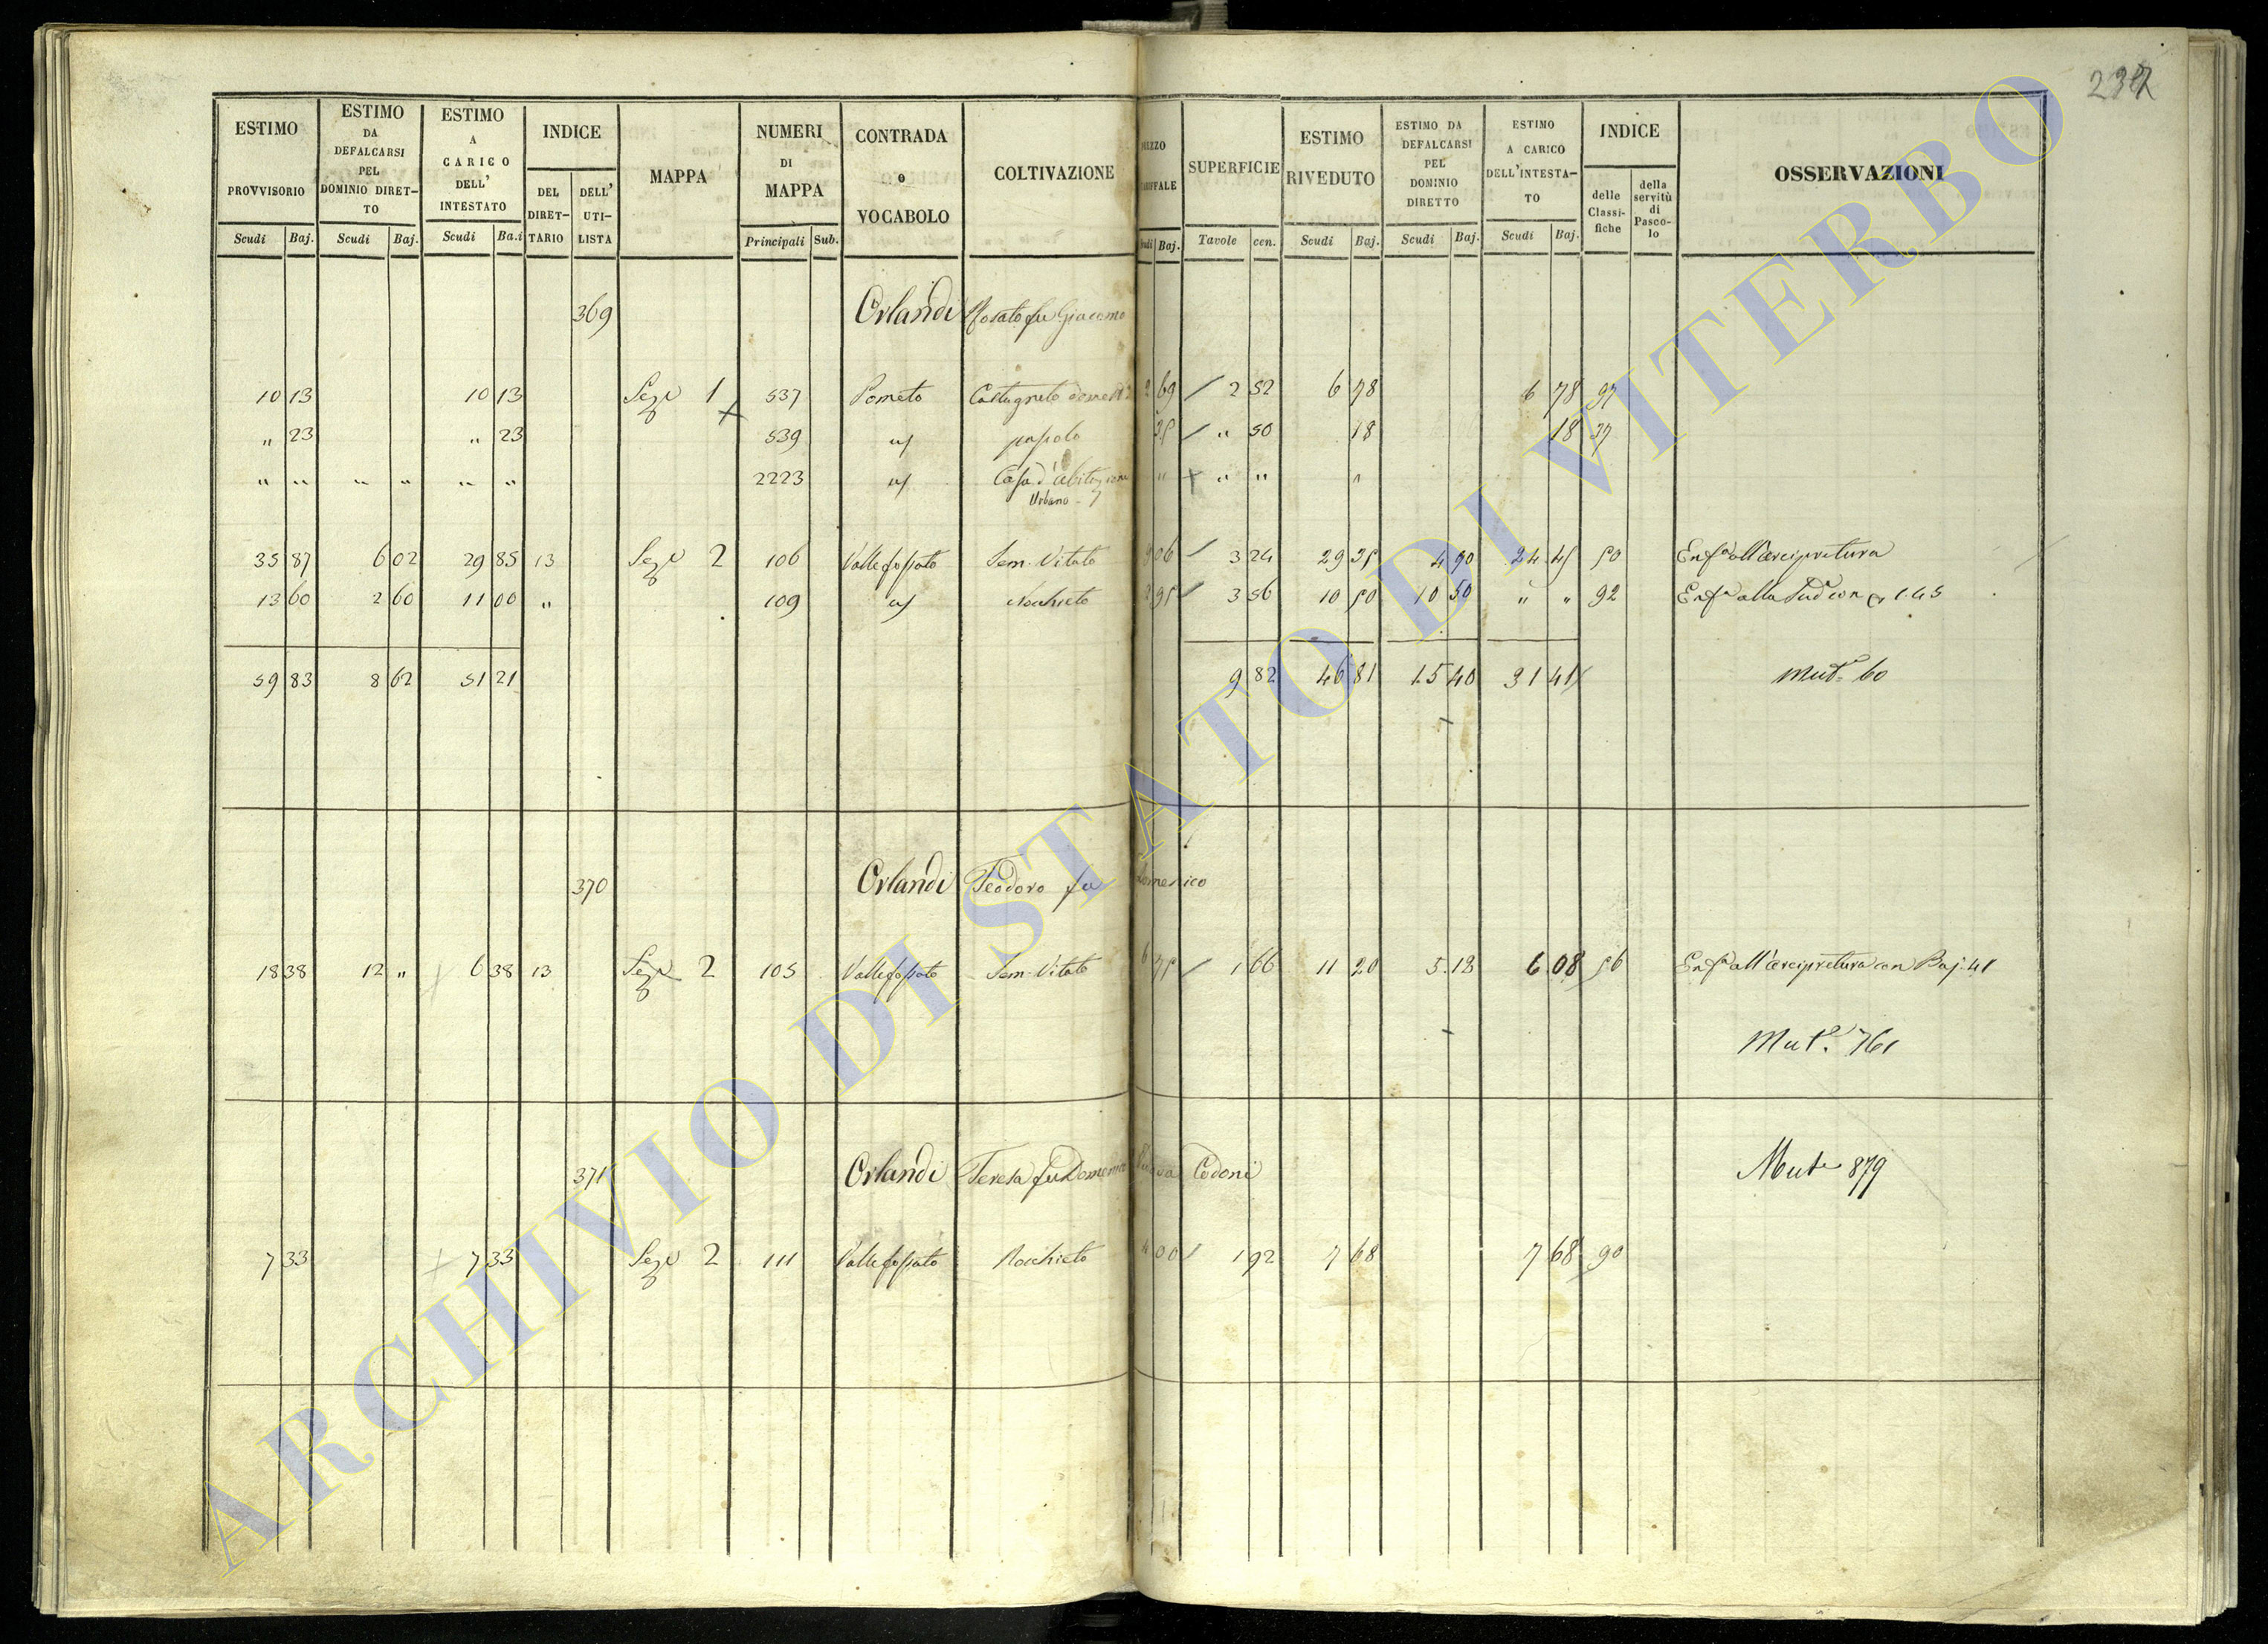 237
ESTIMO PROVVISORIO Scudi Baj.
ESTIMO DA DEFALCARSI PEL DOMINIO DIRET-TO Scudi Baj.
ESTIMO A CARICO DELL' INTESTATO Scudi Ba.i
INDICE DEL DIRET-TARIO DELL' UTI-LISTA
MAPPA
NUMERI DI MAPPA Principali Sub.
CONTRADA o VOCABOLO
COLTIVAZIONE
Baj.
SUPERFICIE Tavole cen.
ESTIMO RIVEDUTO Scudi Baj.
ESTIMO DA DEFALCARSI PEL DOMINIO DIRETTO Scudi Baj.
ESTIMO A CARICO DELL'INTESTA-TO Scudi Baj.
INDICE delle Classi-fiche della servitù di Pasco-lo
OSSERVAZIONI
369 Orlandi Rosato fu Giacomo
10 13 10 13 Seze 1 537 Pometo Castagneto 2 69 / 2 52 6 78 6 78 97
" 23 " 23 539 " 50 18 18 37
" " " " " " 2223 Casa d'abitazione " + " " "
Urbano
35 87 6 02 29 85 13 Seze 2 106 Vallefossato Sem. Vitato 06 / 3 24 29 35 4 90 24 45 50 Enfa all'arcipretura
13 60 2 60 11 00 " 109 Nochieto 2 95 / 3 56 10 50 10 50 " " 92 Enfa alla 1.45
59 83 8 62 51 21 9 82 46 81 15 40 31 41 Muta 60
370 Orlandi Teodoro fu Domenico
18 38 12 " 6 38 13 Seze 2 105 Vallefossato Sem. Vitato 6 75 / 1 66 11 20 5.12 6 08 56 Enfa all'arcipretura con Baj. 41
Muta. 761
371 Orlandi Teresa fu Domenico Codoni Muta 879
7 33 7 33 Seze 2 111 Vallefossato Nochieto 4 00 1 92 7 68 7 68 90
ARCHIVIO DI STATO DI VITERBO